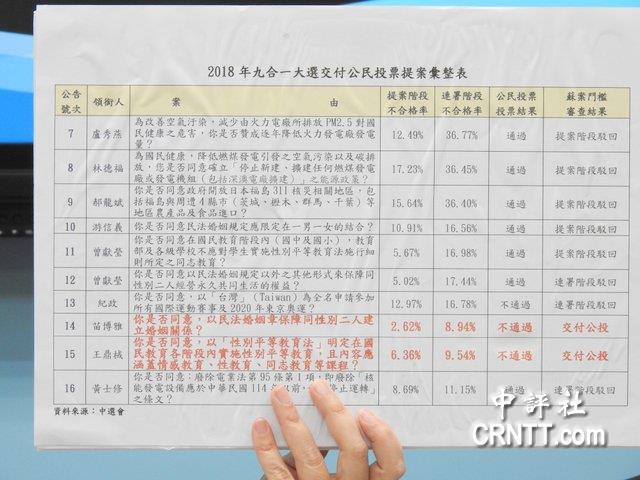 2018 年九合一大選交付公民投票提案彙整表
公告號次 領銜人 案 由 提案階段不合格率 連署階段不合格率 公民投票投票結果 蘇案門檻審查結果
7 盧秀燕 12.49% 36.77% 通過 提案階段駁回
為改善空氣汙染，減少由火力電廠所排放 PM2.5 對國
民健康之危害，你是否贊成逐年降低火力發電廠發電
量？
8 林德福 17.23% 36.45% 通過 提案階段駁回
為國民健康，降低燃煤發電引發之空氣污染以及碳排
放，您是否同意確立「停止新建、擴建任何燃煤發電
廠或發電機組（包括深澳電廠擴建）」之能源政策？
9 郝龍斌 15.64% 36.40% 通過 提案階段駁回
你是否同意政府開放日本福島 311 核災相關地區，包
括福島與周遭 4 縣市（茨城、櫪木、群馬、千葉）等
地區農產品及食品進口？
10 游信義 你是否同意民法婚姻規定應限定在一男一女的結合？ 10.91% 16.56% 通過 提案階段駁回
11 曾獻瑩 5.67% 16.98% 通過 提案階段駁回
你是否同意在國民教育階段內（國中及國小），教育
部及各級學校不應對學生實施性別平等教育法施行細
則所定之同志教育？
12 曾獻瑩 5.02% 17.44% 通過 連署階段駁回
你是否同意以民法婚姻規定以外之其他形式來保障同
性別二人經營永久共同生活的權益？
13 紀政 12.97% 16.78% 不通過 提案階段駁回
你是否同意，以「台灣」（Taiwan）為全名申請參加
所有國際運動賽事及 2020 年東京奧運？
14 苗博雅 2.62% 8.94% 不通過 交付公投
你是否同意，以民法婚姻章保障同性別二人建
立婚姻關係？
15 王鼎棫 6.36% 9.54% 不通過 交付公投
你是否同意，以「性別平等教育法」明定在國
民教育各階段內實施性別平等教育，且內容應
涵蓋情感教育、性教育、同志教育等課程？
16 黃士修 8.69% 11.15% 通過 連署階段駁回
你是否同意：廢除電業法第 95 條第 1 項，即廢除「核
能發電設備應於中華民國 114 年 以前， 停止運轉」
之條文？
資料來源：中選會
中評社
CRNTT.com